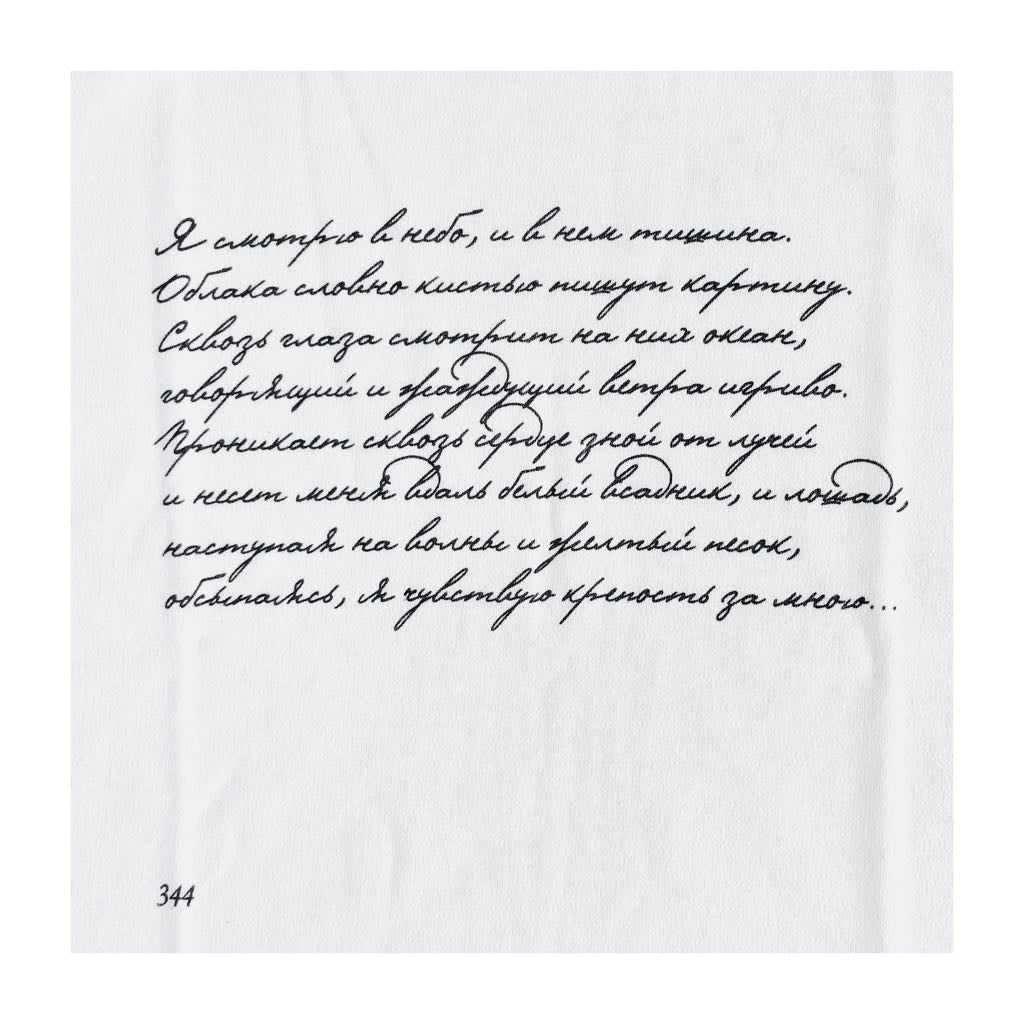 Я смотрю в небо, и в нем тишина.
Облака словно кистью пишут картину.
Сквозь глаза смотрит на них океан,
говорящий и жаждущий ветра игриво.
Проникает сквозь сердце зной от лучей
и несет меня вдаль белый всадник, и лошадь,
наступая на волны и желтый песок,
обсыпаясь, я чувствую крепость за мною...
344